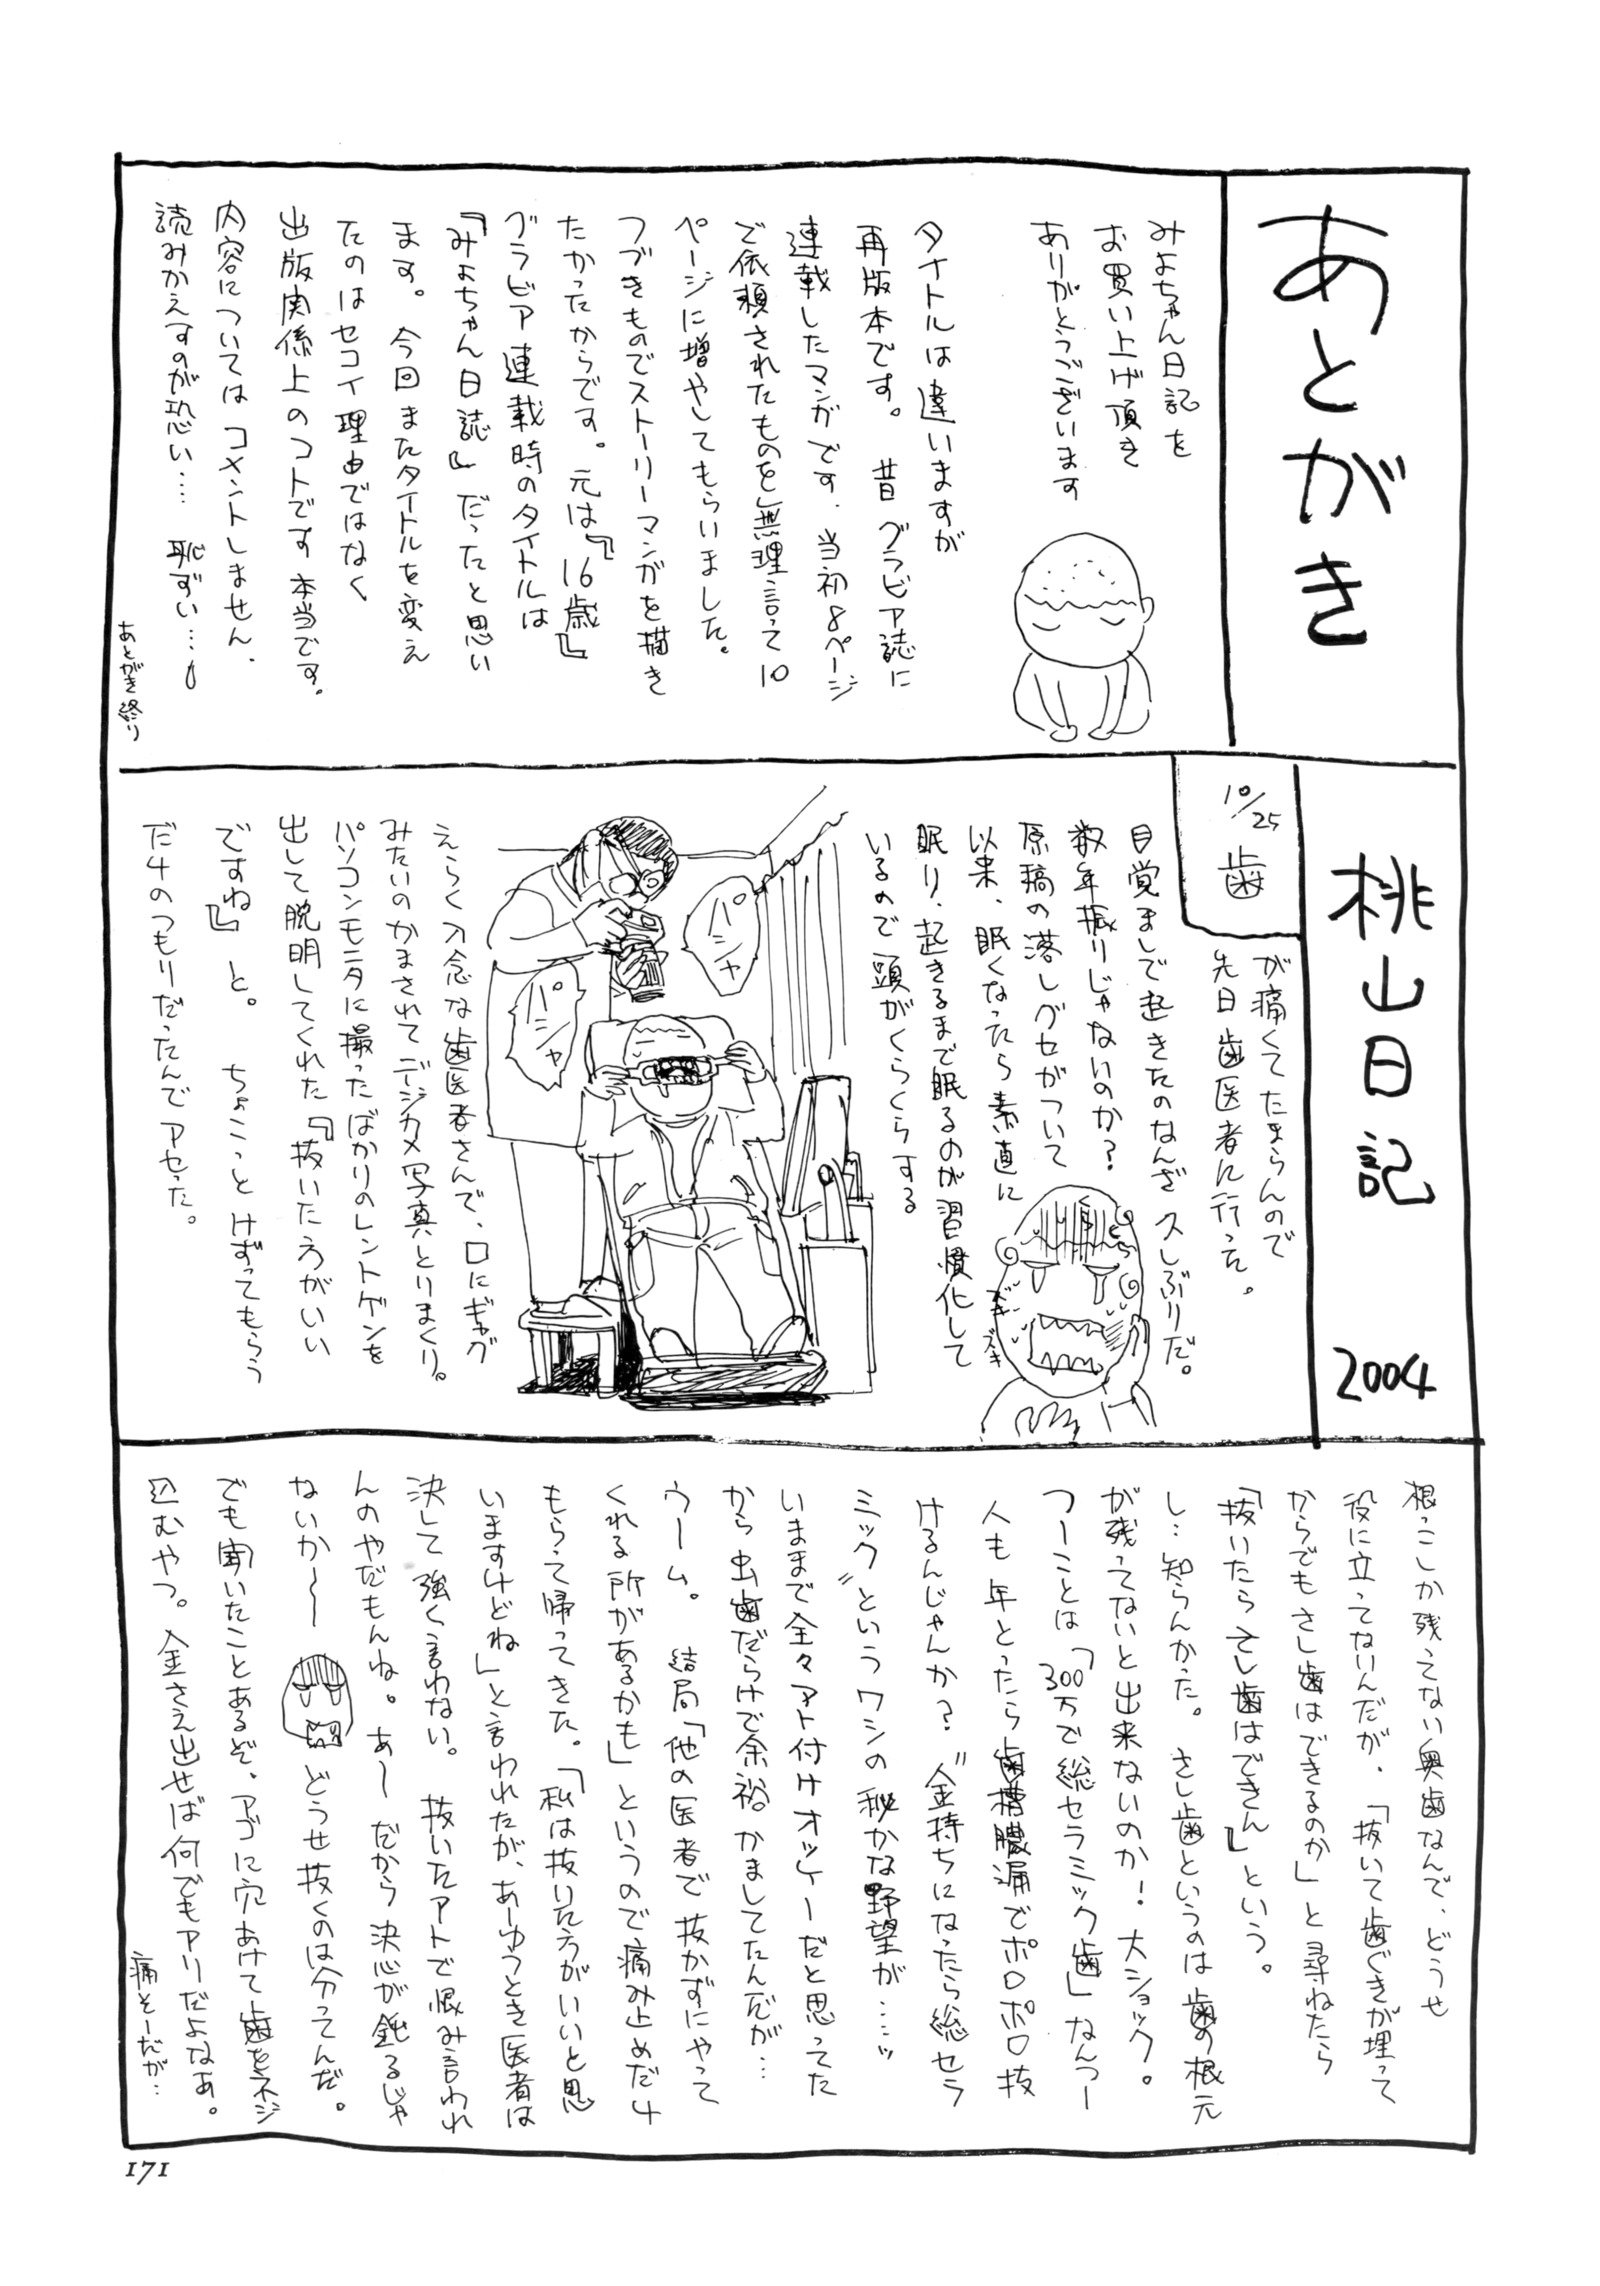 あとがき
みよちゃん日記を
お買い上げ頂き
ありがとうございます
タイトルは違いますが
再版本です。昔グラビア誌に
連載したマンガです。当初8ページ
で依頼されたものを無理言って10
ページに増やしてもらいました。
つづきものでストーリーマンガを描き
たかったからです。元は『16歳』
グラビア連載時のタイトルは
『みよちゃん日誌』だったと思い
ます。今回またタイトルを変え
たのはセコイ理由ではなく
出版関係上のコトです本当です。
内容についてはコメントしません.
読みかえすのが恐い…. 恥ずい…
あとがき終り
桃山日記 2004
10/25
歯
が痛くてたまらんので
先日歯医者に行った。
目覚ましで起きたのなんざ久しぶりだ。
数年振りじゃないのか?
原稿の落しグセがついて
以来、眠くなったら素直に
眠り、起きるまで眠るのが習慣化して
いるので頭がくらくらする
ズキ
ズキ
パシャ
パシャ
えらく入念な歯医者さんで、口にギャグ
みたいのかまされてデジカメ写真とりまくり。
パソコンモニタに撮ったばかりのレントゲンを
出して説明してくれた『抜いた方がいい
ですね』と。ちょこっとけずってもらう
だけのつもりだったんでアセった。
根っこしか残ってない奥歯なんで、どうせ
役に立ってないんだが、「抜いて歯ぐきが埋って
からでもさし歯はできるのか」と尋ねたら
「抜いたらさし歯はできん」という。
し…知らんかった。さし歯というのは歯の根元
が残ってないと出来ないのか!大ショック。
つーことは「300万で総セラミック歯」なんつー
人も年とったら歯槽膿漏でポロポロ抜
けるんじゃんか?〝金持ちになったら総セラ
ミック〟というワシの秘かな野望が……ッ
いままで全々アト付けオッケーだと思ってた
から虫歯だらけで余裕かましてたんだが…
ウーム。結局「他の医者で抜かずにやって
くれる所があるかも」というので痛み止めだけ
もらって帰ってきた。「私は抜いた方がいいと思
いますけどね」と言われたが、あーゆうとき医者は
決して強く言わない。抜いたアトで恨み言われ
んのやだもんね。あー だから決心が鈍るじゃ
ないかー どうせ抜くのは分ってんだ。
でも聞いたことあるぞ、アゴに穴あけて歯をネジ
込むやつ。金さえ出せば何でもアリだよなあ。
痛そーだが…
171